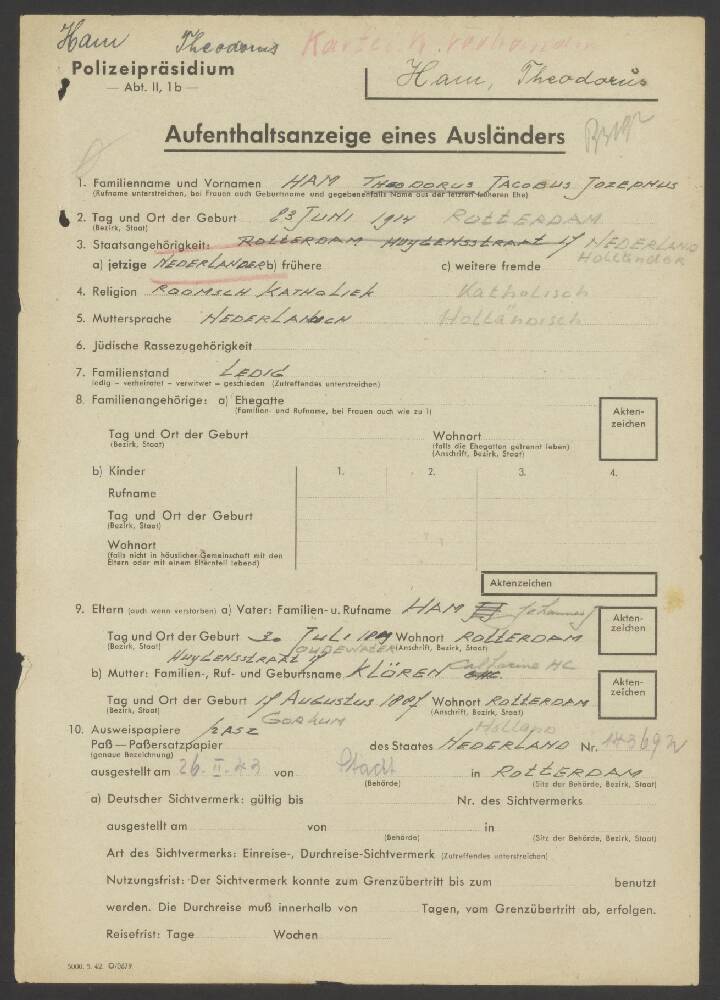 Ham Theodorus Kartei K. vorhanden
Polizeipräsidium
— Abt. II, 1b —
Ham, Theodorus
Aufenthaltsanzeige eines Ausländers
1. Familienname und Vornamen HAM THEODORUS JACOBUS JOZEPHUS
(Rufname unterstreichen, bei Frauen auch Geburtsname und gegebenenfalls Name aus der letzten früheren Ehe)
2. Tag und Ort der Geburt 03 JUNI 1914 ROTTERDAM
(Bezirk, Staat)
3. Staatsangehörigkeit: ROTTERDAM HUYGENSSTRAAT 17 NEDERLAND
a) jetzige NEDERLANDER b) frühere c) weitere fremde Holländer
4. Religion ROOMSCH KATHOLIEK Katholisch
5. Muttersprache NEDERLANDSCH Holländisch
6. Jüdische Rassezugehörigkeit
7. Familienstand LEDIG
ledig – verheiratet – verwitwet – geschieden (Zutreffendes unterstreichen)
8. Familienangehörige: a) Ehegatte
(Familien- und Rufname, bei Frauen auch wie zu 1)
Akten-
zeichen
Tag und Ort der Geburt Wohnort
(Bezirk, Staat) (falls die Ehegatten getrennt leben)
(Anschrift, Bezirk, Staat)
b) Kinder 1. 2. 3. 4.
Rufname
Tag und Ort der Geburt
(Bezirk, Staat)
Wohnort
(falls nicht in häuslicher Gemeinschaft mit den
Eltern oder mit einem Elternteil lebend)
Aktenzeichen
9. Eltern (auch wenn verstorben) a) Vater: Familien- u. Rufname HAM Johannes J
Akten-
zeichen
Tag und Ort der Geburt 20 JULI Wohnort ROTTERDAM
(Bezirk, Staat) OUDEWATER (Anschrift, Bezirk, Staat)
HUYGENSSTRAAT 17
b) Mutter: Familien-, Ruf- und Geburtsname KLÖREN Catharina HC
Akten-
zeichen
Tag und Ort der Geburt 17 AUGUSTUS Wohnort ROTTERDAM
(Bezirk, Staat) GORKUM (Anschrift, Bezirk, Staat)
Holland
10. Ausweispapiere PASZ
Paß—Paßersatzpapier des Staates NEDERLAND Nr. 143692
(genaue Bezeichnung)
ausgestellt am 26. II. 43 von Stadt in ROTTERDAM
(Behörde) (Sitz der Behörde, Bezirk, Staat)
a) Deutscher Sichtvermerk: gültig bis Nr. des Sichtvermerks
ausgestellt am von in
(Behörde) (Sitz der Behörde, Bezirk, Staat)
Art des Sichtvermerks: Einreise-, Durchreise-Sichtvermerk (Zutreffendes unterstreichen)
Nutzungsfrist: Der Sichtvermerk konnte zum Grenzübertritt bis zum benutzt
werden. Die Durchreise muß innerhalb von Tagen, vom Grenzübertritt ab, erfolgen.
Reisefrist: Tage Wochen
5000. 5. 42. O/0679